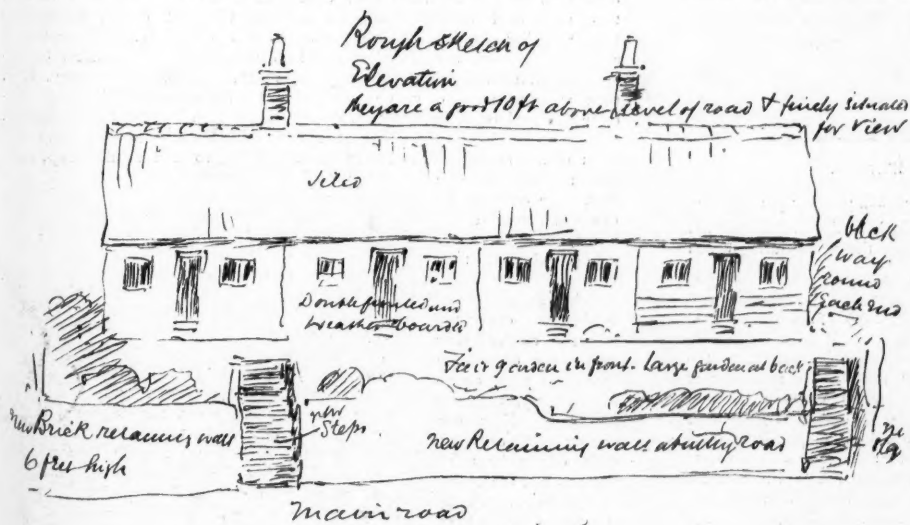 Rough sketch of
Elevation
They are a good 10 ft above level of road & finely situated
for view
tiled
back
way
round
each end
Double fronted and
weather boarded
Fair garden in front. Large garden at back
new Brick retaining wall
6 feet high
new
Steps
new Retaining wall abutting road
Main road